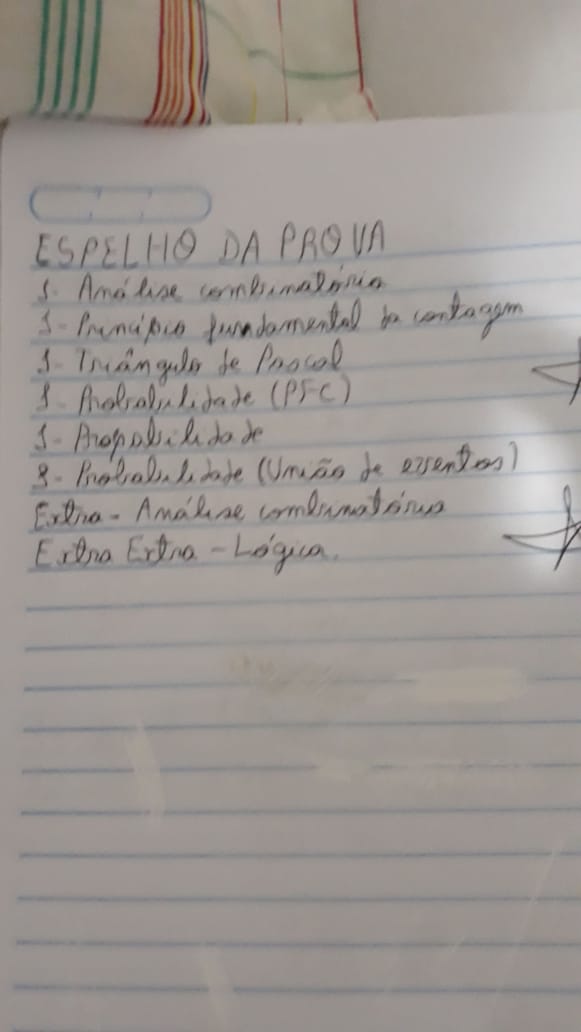 ESPELHO DA PROVA
1- Análise combinatória
1- Princípio fundamental da contagem
1- Triângulo de Pascal
1- Probabilidade (PFC)
1- Propobilidade
3- Probabilidade (União de eventos)
Extra - Análise combinatória
Extra Extra - Lógica.